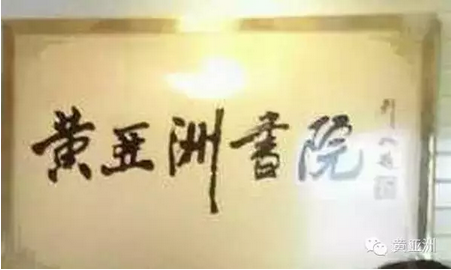 黄亚洲书院
黄亚洲